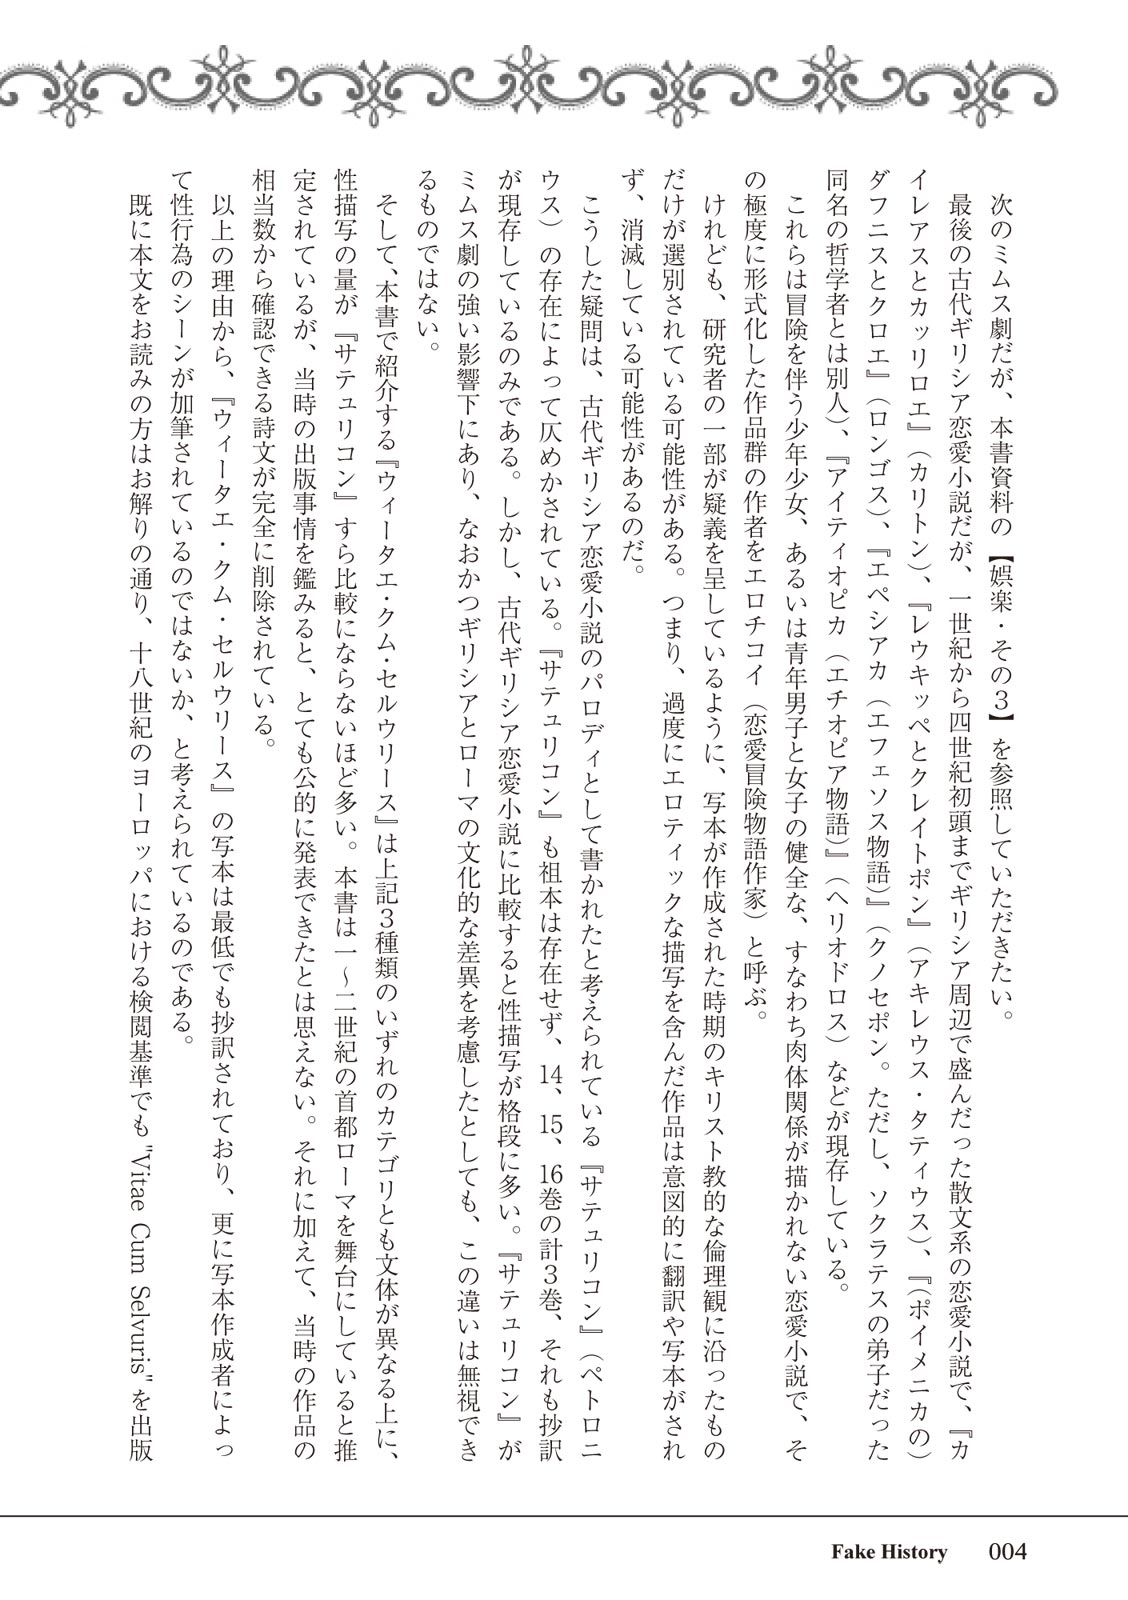 次のミムス劇だが、本書資料の【娯楽・その３】を参照していただきたい。
最後の古代ギリシア恋愛小説だが、一世紀から四世紀初頭までギリシア周辺で盛んだった散文系の恋愛小説で、『カ
イレアスとカッリロエ』（カリトン）、『レウキッペとクレイトポン』（アキレウス・タティウス）、『（ポイメニカの）
ダフニスとクロエ』（ロンゴス）、『エペシアカ（エフェソス物語）』（クノセポン。ただし、ソクラテスの弟子だった
同名の哲学者とは別人）、『アイティオピカ（エチオピア物語）』（ヘリオドロス）などが現存している。
これらは冒険を伴う少年少女、あるいは青年男子と女子の健全な、すなわち肉体関係が描かれない恋愛小説で、そ
の極度に形式化した作品群の作者をエロチコイ（恋愛冒険物語作家）と呼ぶ。
けれども、研究者の一部が疑義を呈しているように、写本が作成された時期のキリスト教的な倫理観に沿ったもの
だけが選別されている可能性がある。つまり、過度にエロティックな描写を含んだ作品は意図的に翻訳や写本がされ
ず、消滅している可能性があるのだ。
こうした疑問は、古代ギリシア恋愛小説のパロディとして書かれたと考えられている『サテュリコン』（ペトロニ
ウス）の存在によって仄めかされている。『サテュリコン』も祖本は存在せず、14、15、16巻の計３巻、それも抄訳
が現存しているのみである。しかし、古代ギリシア恋愛小説に比較すると性描写が格段に多い。『サテュリコン』が
ミムス劇の強い影響下にあり、なおかつギリシアとローマの文化的な差異を考慮したとしても、この違いは無視でき
るものではない。
そして、本書で紹介する『ウィータエ・クム・セルウリース』は上記３種類のいずれのカテゴリとも文体が異なる上に、
性描写の量が『サテュリコン』すら比較にならないほど多い。本書は一～二世紀の首都ローマを舞台にしていると推
定されているが、当時の出版事情を鑑みると、とても公的に発表できたとは思えない。それに加えて、当時の作品の
相当数から確認できる詩文が完全に削除されている。
以上の理由から、『ウィータエ・クム・セルウリース』の写本は最低でも抄訳されており、更に写本作成者によっ
て性行為のシーンが加筆されているのではないか、と考えられているのである。
既に本文をお読みの方はお解りの通り、十八世紀のヨーロッパにおける検閲基準でも"Vitae Cum Selvuris"を出版
Fake History 004